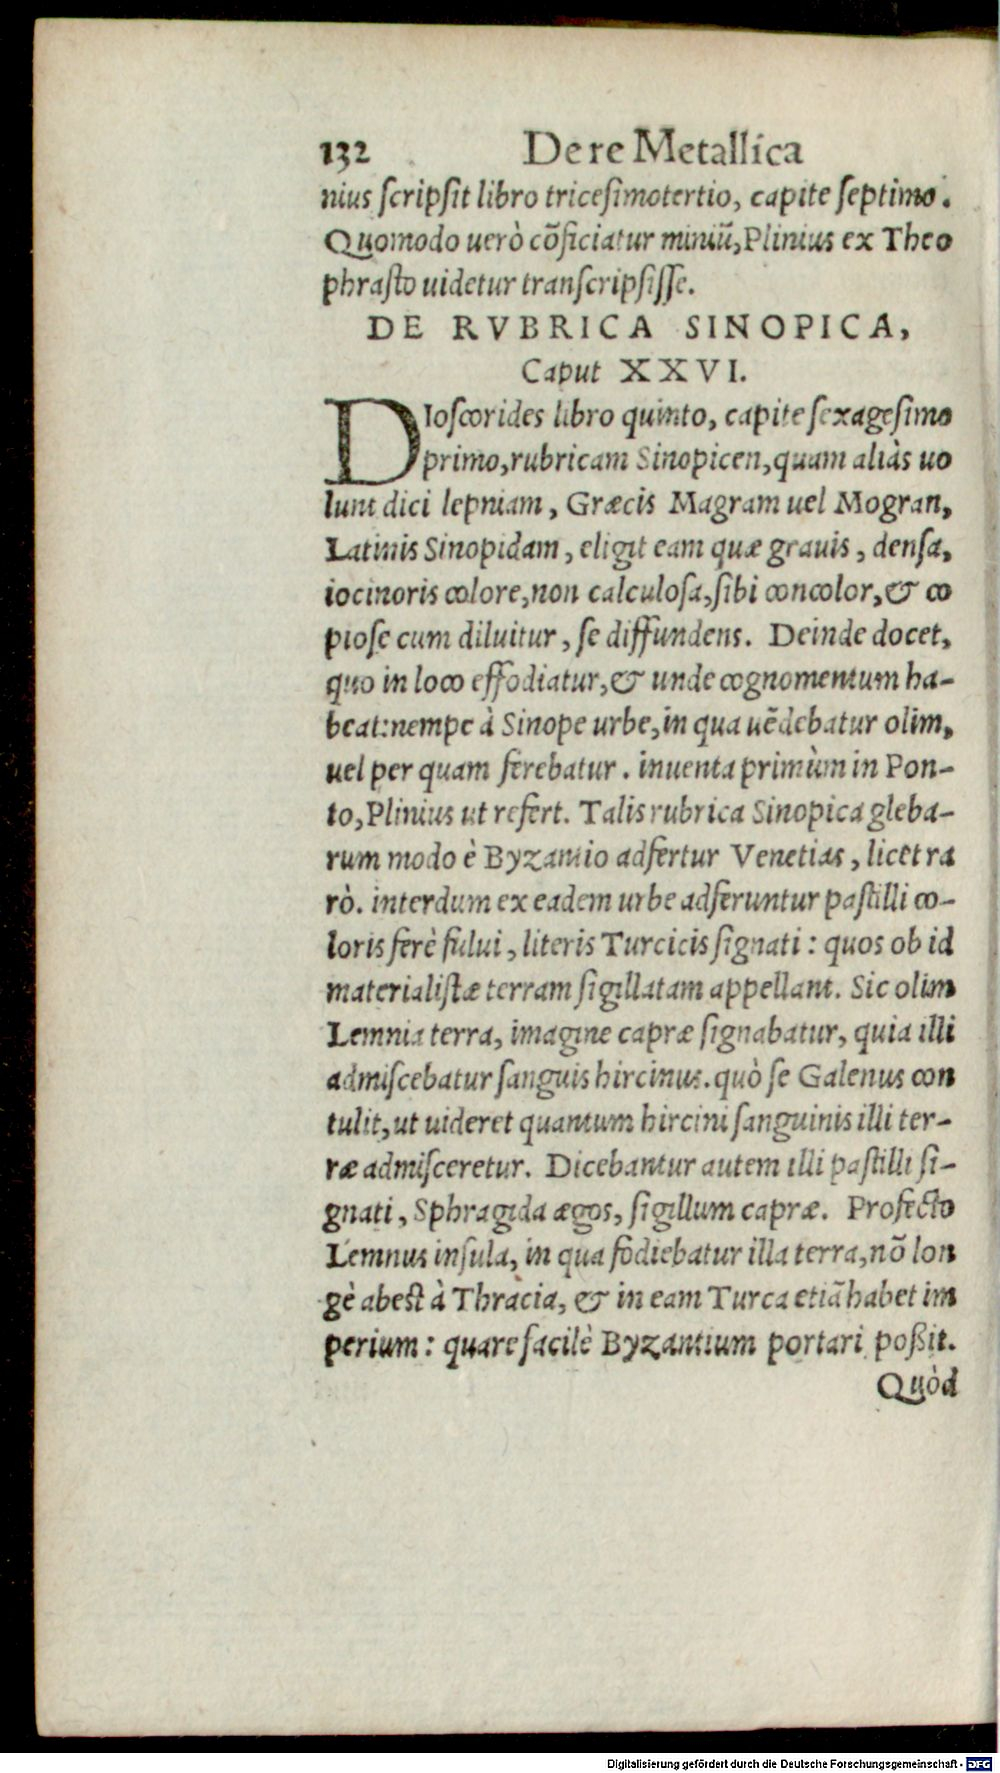 132 De re Metallica
nius scripsit libro tricesimotertio, capite septimo.
Quomodo uerò cõficiatur miniũ, Plinius ex Theo
phrasto uidetur transcripsisse.
DE RVBRICA SINOPICA,
Caput XXVI.
DIoscorides libro quinto, capite sexagesimo
primo, rubricam Sinopicen, quam aliàs uo
lunt dici lepniam, Græcis Magram uel Mogran,
Latinis Sinopidam, eligit eam quæ grauis, densa,
iocinoris colore, non calculosa, sibi concolor, & co
piose cum diluitur, se diffundens. Deinde docet,
quo in loco effodiatur, & unde cognomentum ha-
beat: nempe à Sinope urbe, in qua uẽdebatur olim,
uel per quam ferebatur. inuenta primùm in Pon-
to, Plinius ut refert. Talis rubrica Sinopica gleba-
rum modo è Byzantio adfertur Venetias, licet ra
rò. interdum ex eadem urbe adferuntur pastilli co-
loris ferè fului, literis Turcicis signati: quos ob id
materialistæ terram sigillatam appellant. Sic olim
Lemnia terra, imagine capræ signabatur, quia illi
admiscebatur sanguis hircinus. quò se Galenus con
tulit, ut uideret quantum hircini sanguinis illi ter-
ræ admisceretur. Dicebantur autem illi pastilli si-
gnati, Sphragida ægos, sigillum capræ. Profecto
Lemnus insula, in qua fodiebatur illa terra, nõ lon
gè abest à Thracia, & in eam Turca etiã habet im
perium: quare facilè Byzantium portari poßit.
Quòd
Digitalisierung gefördert durch die Deutsche Forschungsgemeinschaft - DFG